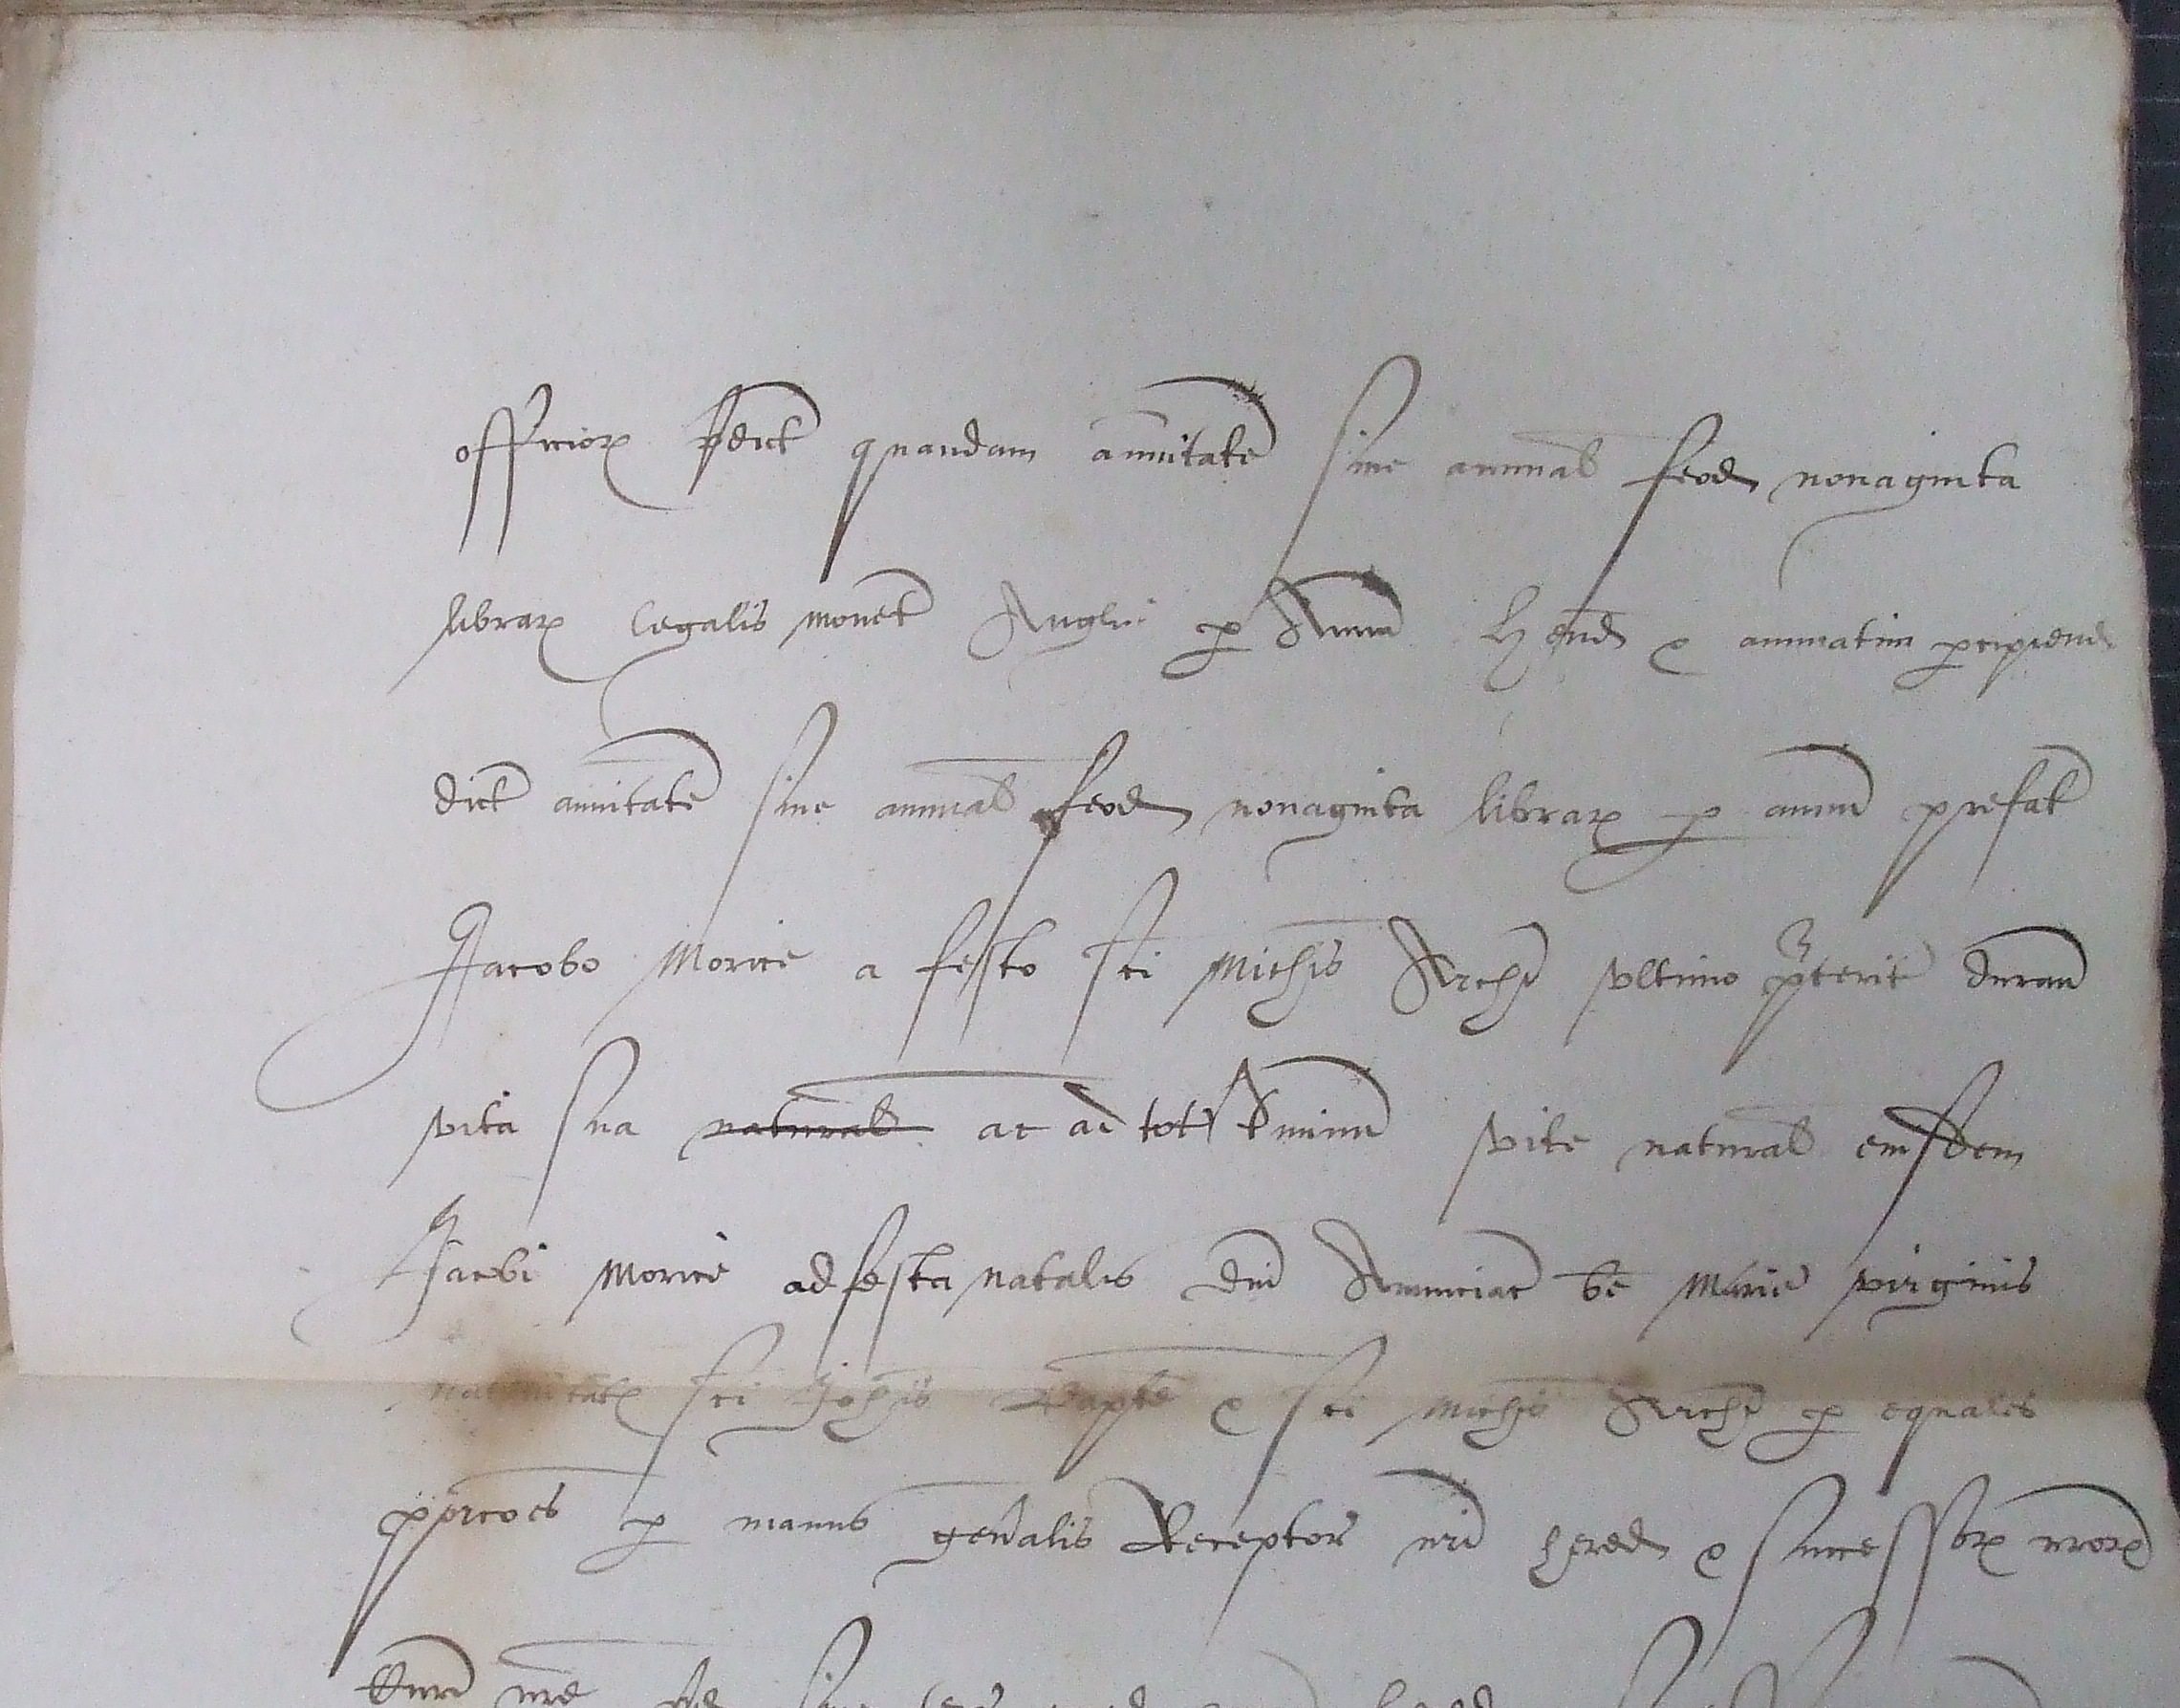 officior p̱dict quandam annuitatē sive annual feod nonaginta
librar legalis monet Anglie p Annū Hend & annuatim pcipiend
dict annuitatē sive annual feod nonaginta librar p annū prefat
Jacobo Morice a festo sci Michis Archi ultimo pterit duran
vita sua natural ac ad totū tminū vite natural eiusdem
Jacobi Morice ad festa natalis dni Annuciac be Marie virginis
nativitat sci Johis Bapte & sci Michis Archi p equales
porcoes p manus genalis Receptor nri hered & successor nror
Cur nre